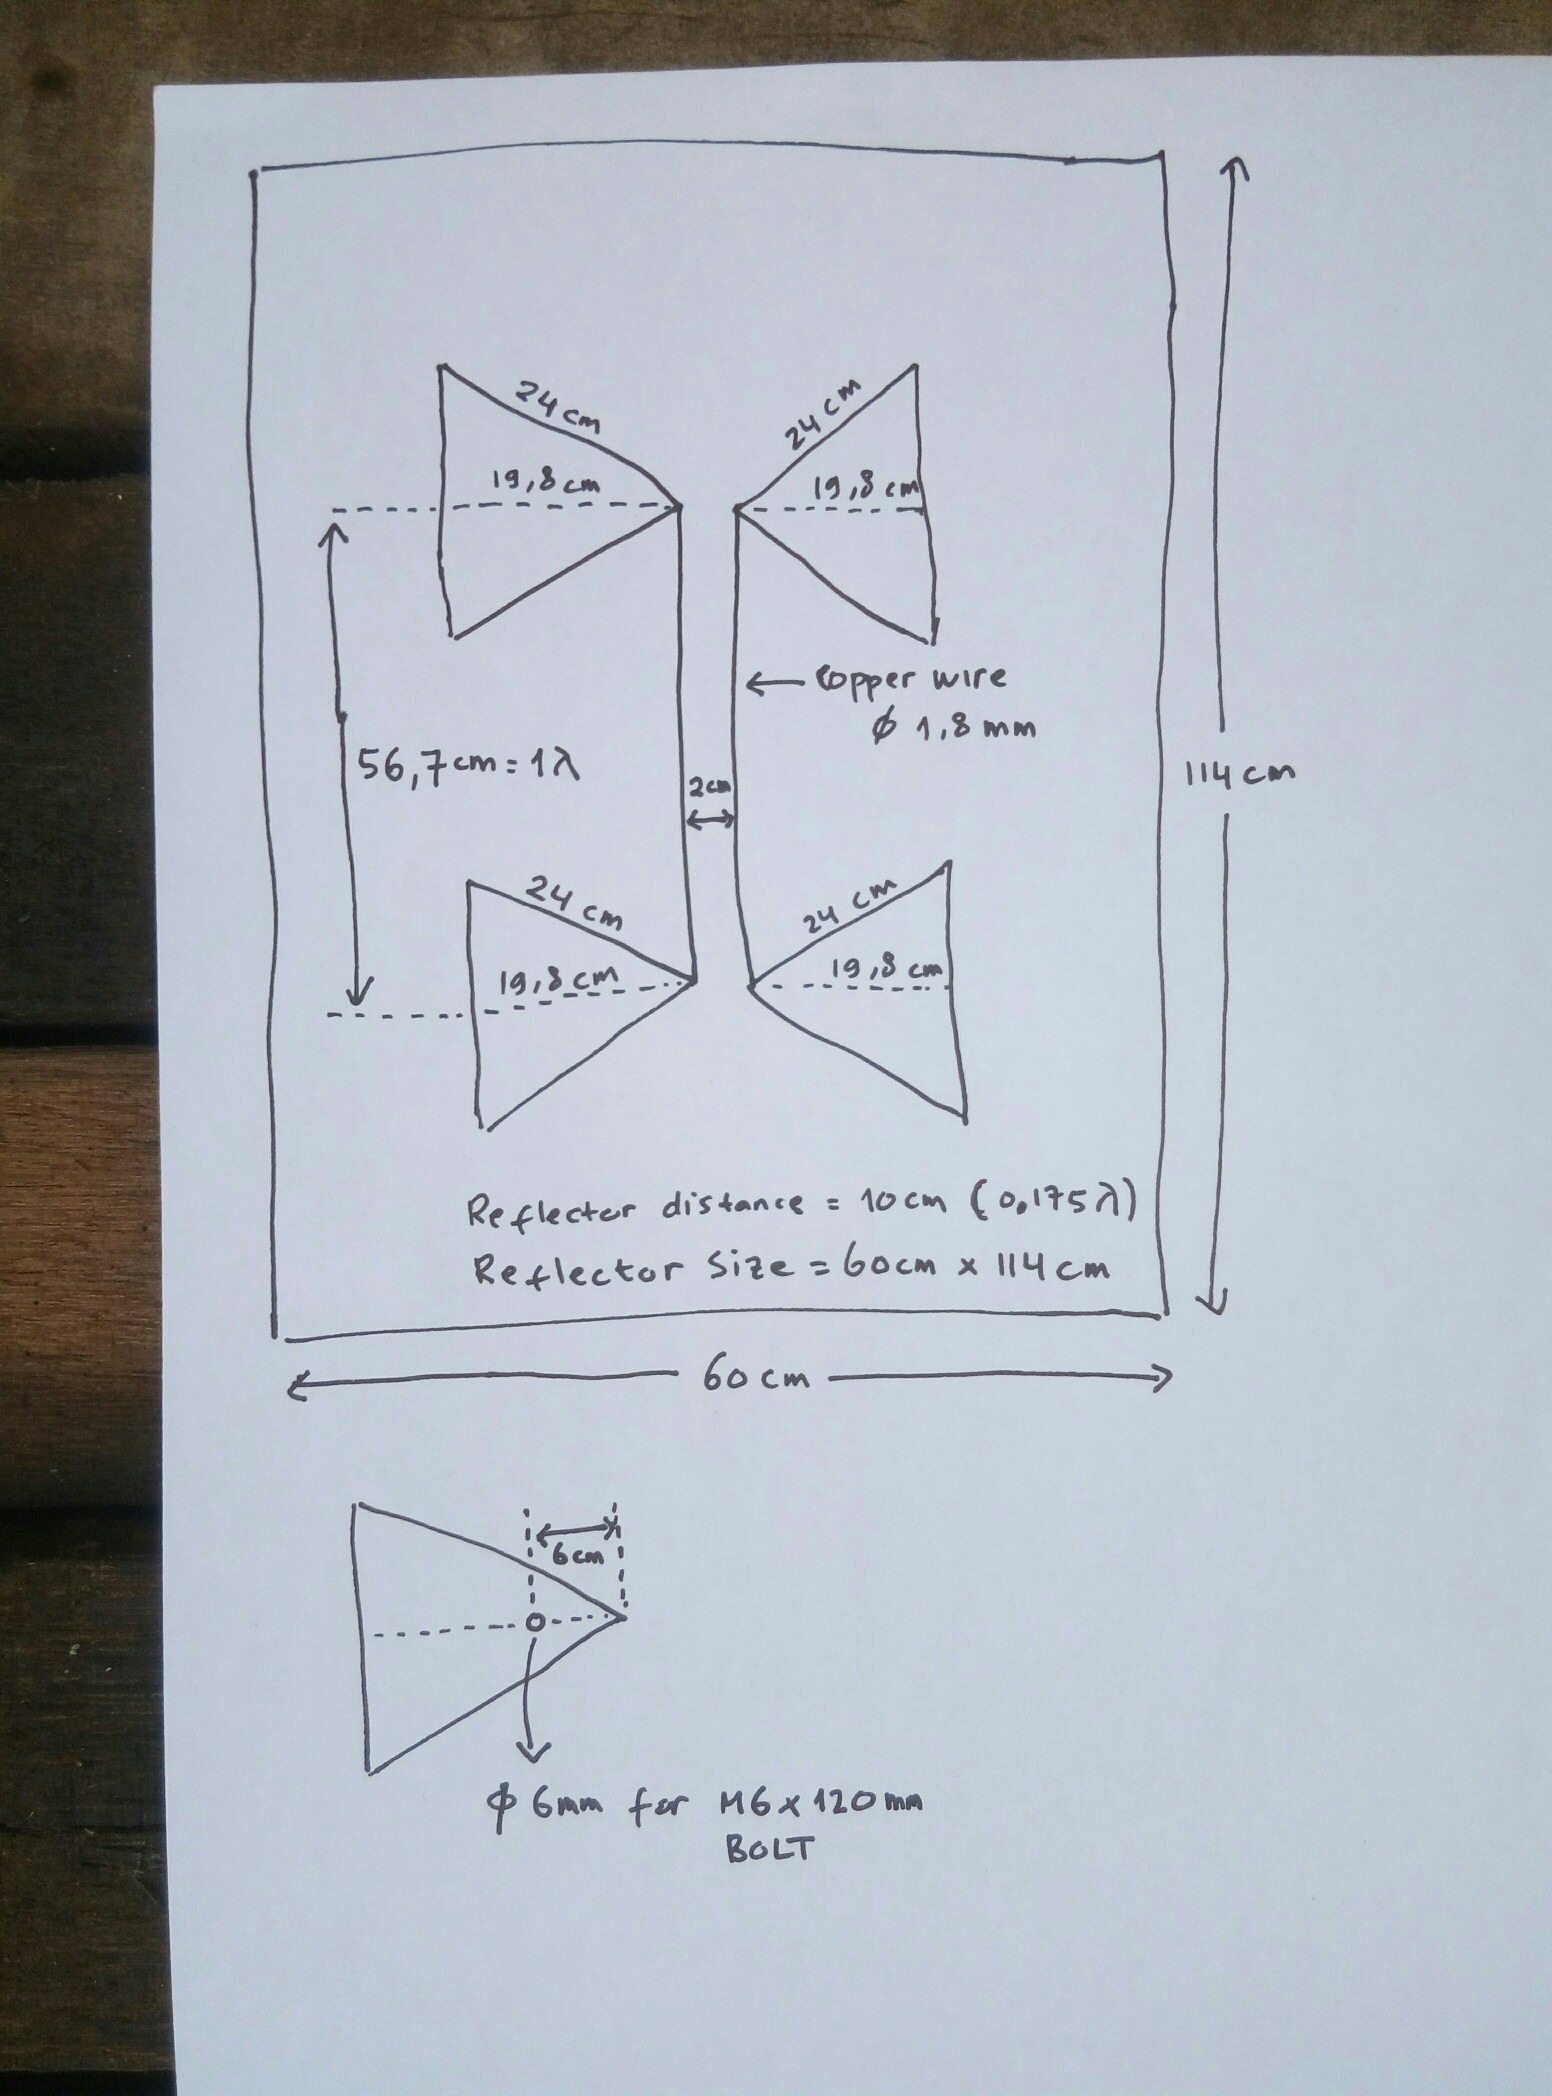 24 cm
24 cm
19,8 cm
19,8 cm
copper wire
ϕ 1,8 mm
56,7 cm = 1λ
2 cm
114 cm
24 cm
24 cm
19,8 cm
19,8 cm
Reflector distance = 10 cm (0,175 λ)
Reflector Size = 60 cm x 114 cm
60 cm
6 cm
ϕ 6mm for M6 x 120 mm
BOLT